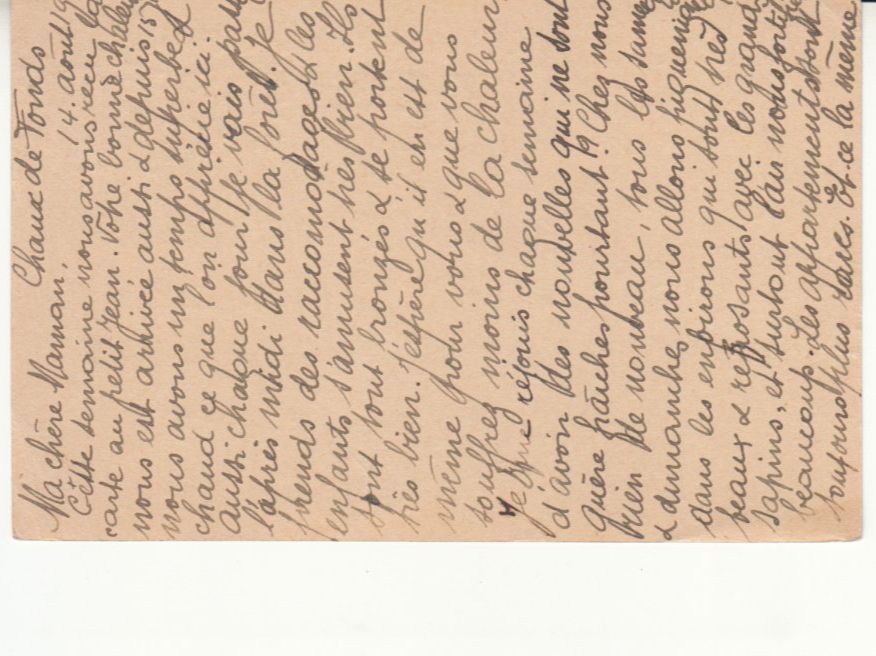 Chaux de Fonds
14. août 19
Ma chère Maman,
Cette semaine nous avons reçu la
carte au petit Jean. Votre bonne chaleur
nous est arrivée aussi & depuis 15 j
nous avons un temps superbe &
chaud ce que l'on apprécie ici.
Aussi chaque jour je vais passer
l'après midi dans la forêt. Je
prends des raccomodages & les
enfants s'amusent très bien. Ils
sont tout bronzés & se portent
très bien. J'espère qu'il en est de
même pour vous & que vous
souffrez moins de la chaleur
Je me réjouis chaque semaine
d'avoir des nouvelles qui ne sont
guère fraîches pourtant!? Chez nous
rien de nouveau, tous les samedis
& dimanches nous allons piqueniquer
dans les environs qui sont très
beaux & reposants avec les grands
sapins, et surtout l'air nous fortifie
beaucoup. Les appartements sont
toujours plus rares. Est-ce la même